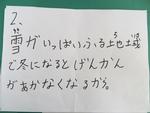 2、
雪がいっぱいふる地域
で冬になるとげんかん
があかなくなるから。